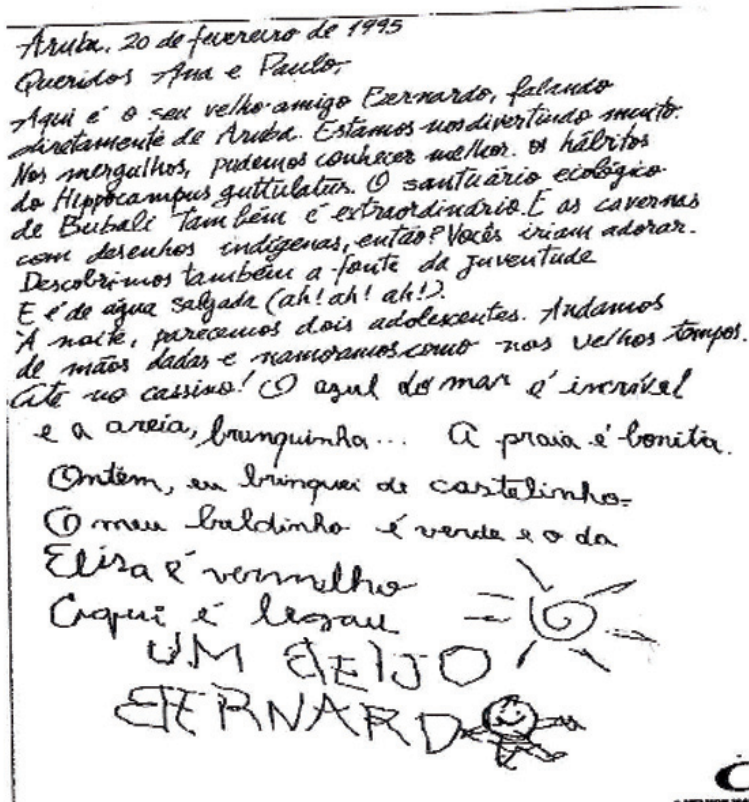 Aruba, 20 de fevereiro de 1995
Queridos Ana e Paulo,
Aqui é o seu velho amigo Bernardo, falando
diretamente de Aruba. Estamos nos divertindo muito.
Nos mergulhos, pudemos conhecer melhor os hábitos
do Hippocampus guttulatus. O santuário ecológico
de Bubali também é extraordinário. E as cavernas
com desenhos indígenas, então? Vocês iriam adorar.
Descobrimos também a fonte da juventude
E é de água salgada (ah! ah! ah!).
À noite, parecemos dois adolescentes. Andamos
de mãos dadas e namoramos como nos velhos tempos.
Até no cassino! O azul do mar é incrível
e a areia, branquinha... A praia é bonita.
Ontem, eu brinquei de castelinho.
O meu baldinho é verde e o da
Elisa é vermelho
Aqui é legau
UM BEIJO
BERNARDO